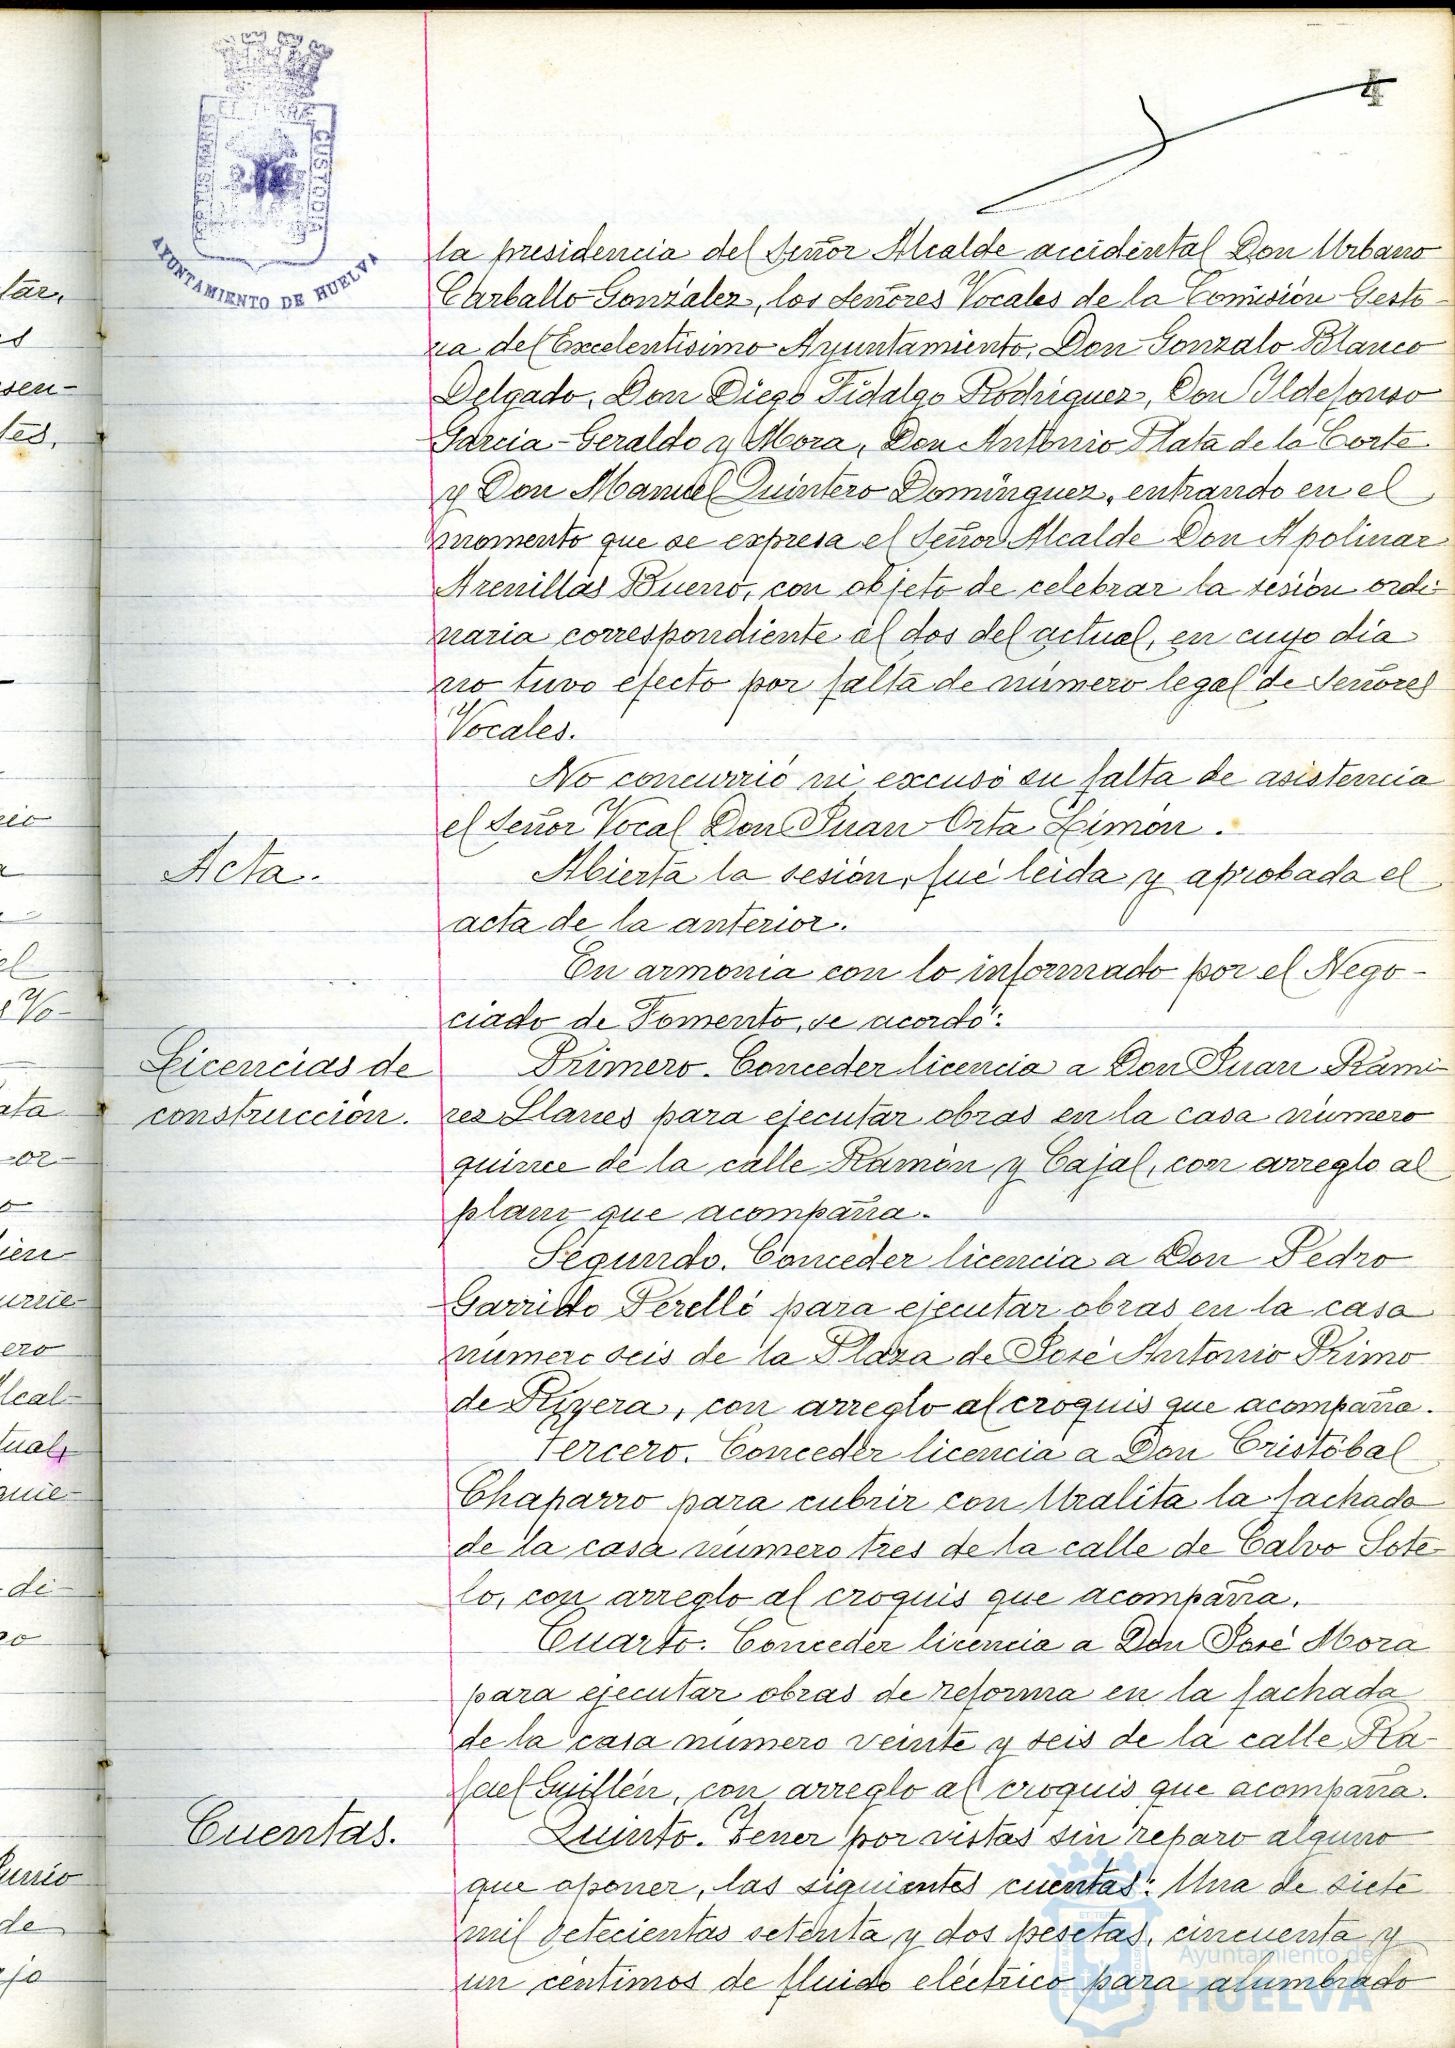 4
PORTUS MARIS ET TERRÆ CUSTODIA
AYUNTAMIENTO DE HUELVA
la presidencia del Señor Alcalde accidental Don Urbano
Carballo González, los Señores Vocales de la Comisión Gesto-
ra del Excelentisimo Ayuntamiento, Don Gonzalo Blanco
Delgado, Don Diego Fidalgo Rodriguez, Don Ildefonso
Garcia-Geraldo y Mora, Don Antonio Plata de la Corte
y Don Manuel Quintero Dominguez, entrando en el
momento que se expresa el Señor Alcalde Don Apolinar
Arenillas Bueno, con objeto de celebrar la sesión ordi-
naria correspondiente al dos del actual, en cuyo dia
no tuvo efecto por falta de número legal de Señores
Vocales.
No concurrió ni excusó su falta de asistencia
el Señor Vocal Don Juan Orta Limón.
Acta.
Abierta la sesión, fué leida y aprobada el
acta de la anterior.
En armonia con lo informado por el Nego-
ciado de Fomento, se acordó:
Licencias de
construcción.
Primero. Conceder licencia a Don Juan Rami-
rez Llanes para ejecutar obras en la casa número
quince de la calle Ramón y Cajal, con arreglo al
plano que acompaña.
Segundo. Conceder licencia a Don Pedro
Garrido Perelló para ejecutar obras en la casa
número seis de la Plaza de José Antonio Primo
de Rivera, con arreglo al croquis que acompaña.
Tercero. Conceder licencia a Don Cristóbal
Chaparro para cubrir con Uralita la fachada
de la casa número tres de la calle de Calvo Sote-
lo, con arreglo al croquis que acompaña.
Cuarto. Conceder licencia a Don José Mora
para ejecutar obras de reforma en la fachada
de la casa número veinte y seis de la calle Ra-
fael Guillén, con arreglo al croquis que acompaña.
Cuentas.
Quinto. Tener por vistas sin reparo alguno
que oponer, las siguientes cuentas: Una de siete
mil setecientas setenta y dos pesetas, cincuenta y
un céntimos de fluido eléctrico para alumbrado
Ayuntamiento de
HUELVA